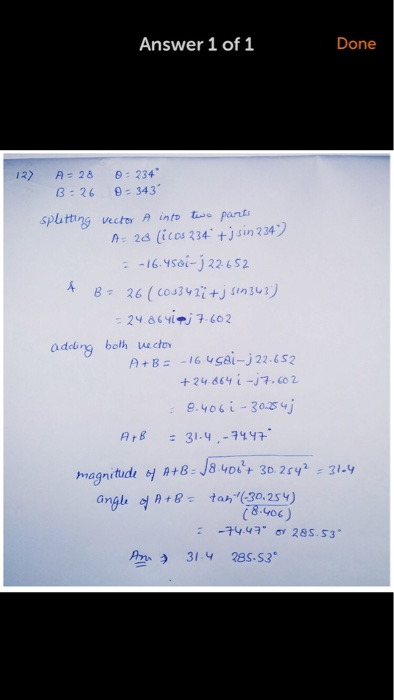 Answer 1 of 1 Done
12) A = 28 θ = 234°
B = 26 θ = 343°
splitting vector A into two parts
A = 28 (i cos 234° + j sin 234°)
= -16.458i - j 22.652
& B = 26 (cos 343° i + j sin 343)
= 24.864i - j 7.602
adding both vector
A+B = -16.458i - j22.652
+ 24.864 i - j7.602
= 8.406 i - 30.254j
A+B = 31.4, -74.47°
magnitude of A+B = √8.406² + 30.254² = 31.4
angle of A+B = tan⁻¹(-30.254)
(8.406)
= -74.47° or 285.53°
Ans → 31.4 285.53°